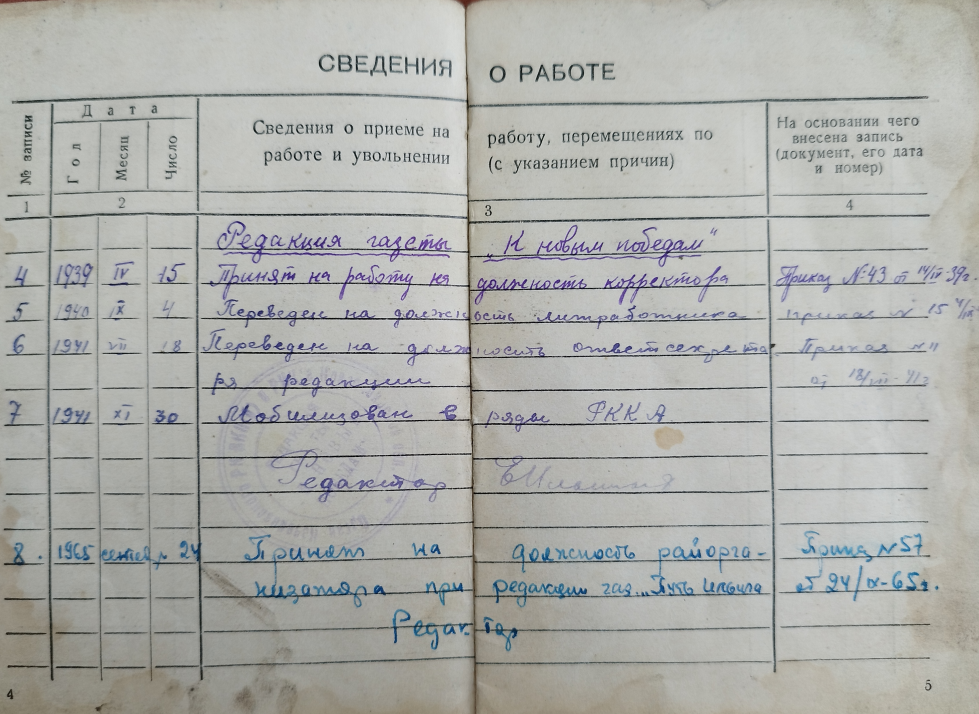 СВЕДЕНИЯ О РАБОТЕ
№ записи
Дата
Год
Месяц
Число
Сведения о приеме на работу, перемещениях по
работе и увольнении (с указанием причин)
На основании чего
внесена запись
(документ, его дата
и номер)
1 2 3 4
Редакция газеты „К новым победам"
4 1939 IV 15 Принят на работу на должность корректора Приказ №43 от 14/IV-39г.
5 1940 IX 4 Переведен на должность литработника приказ № 15 4/IX
6 1941 VII 18 Переведен на должность ответсекрета Приказ № 11
ря редакции от 18/VII-41г
7 1941 XI 30 Мобилизован в ряды РККА
Редактор
8. 1965 сентяб 24 Принят на должность райорга- Приказ №57
низатора при редакции газ. „Путь Ильича от 24/IX-65г.
Редактор
4 5